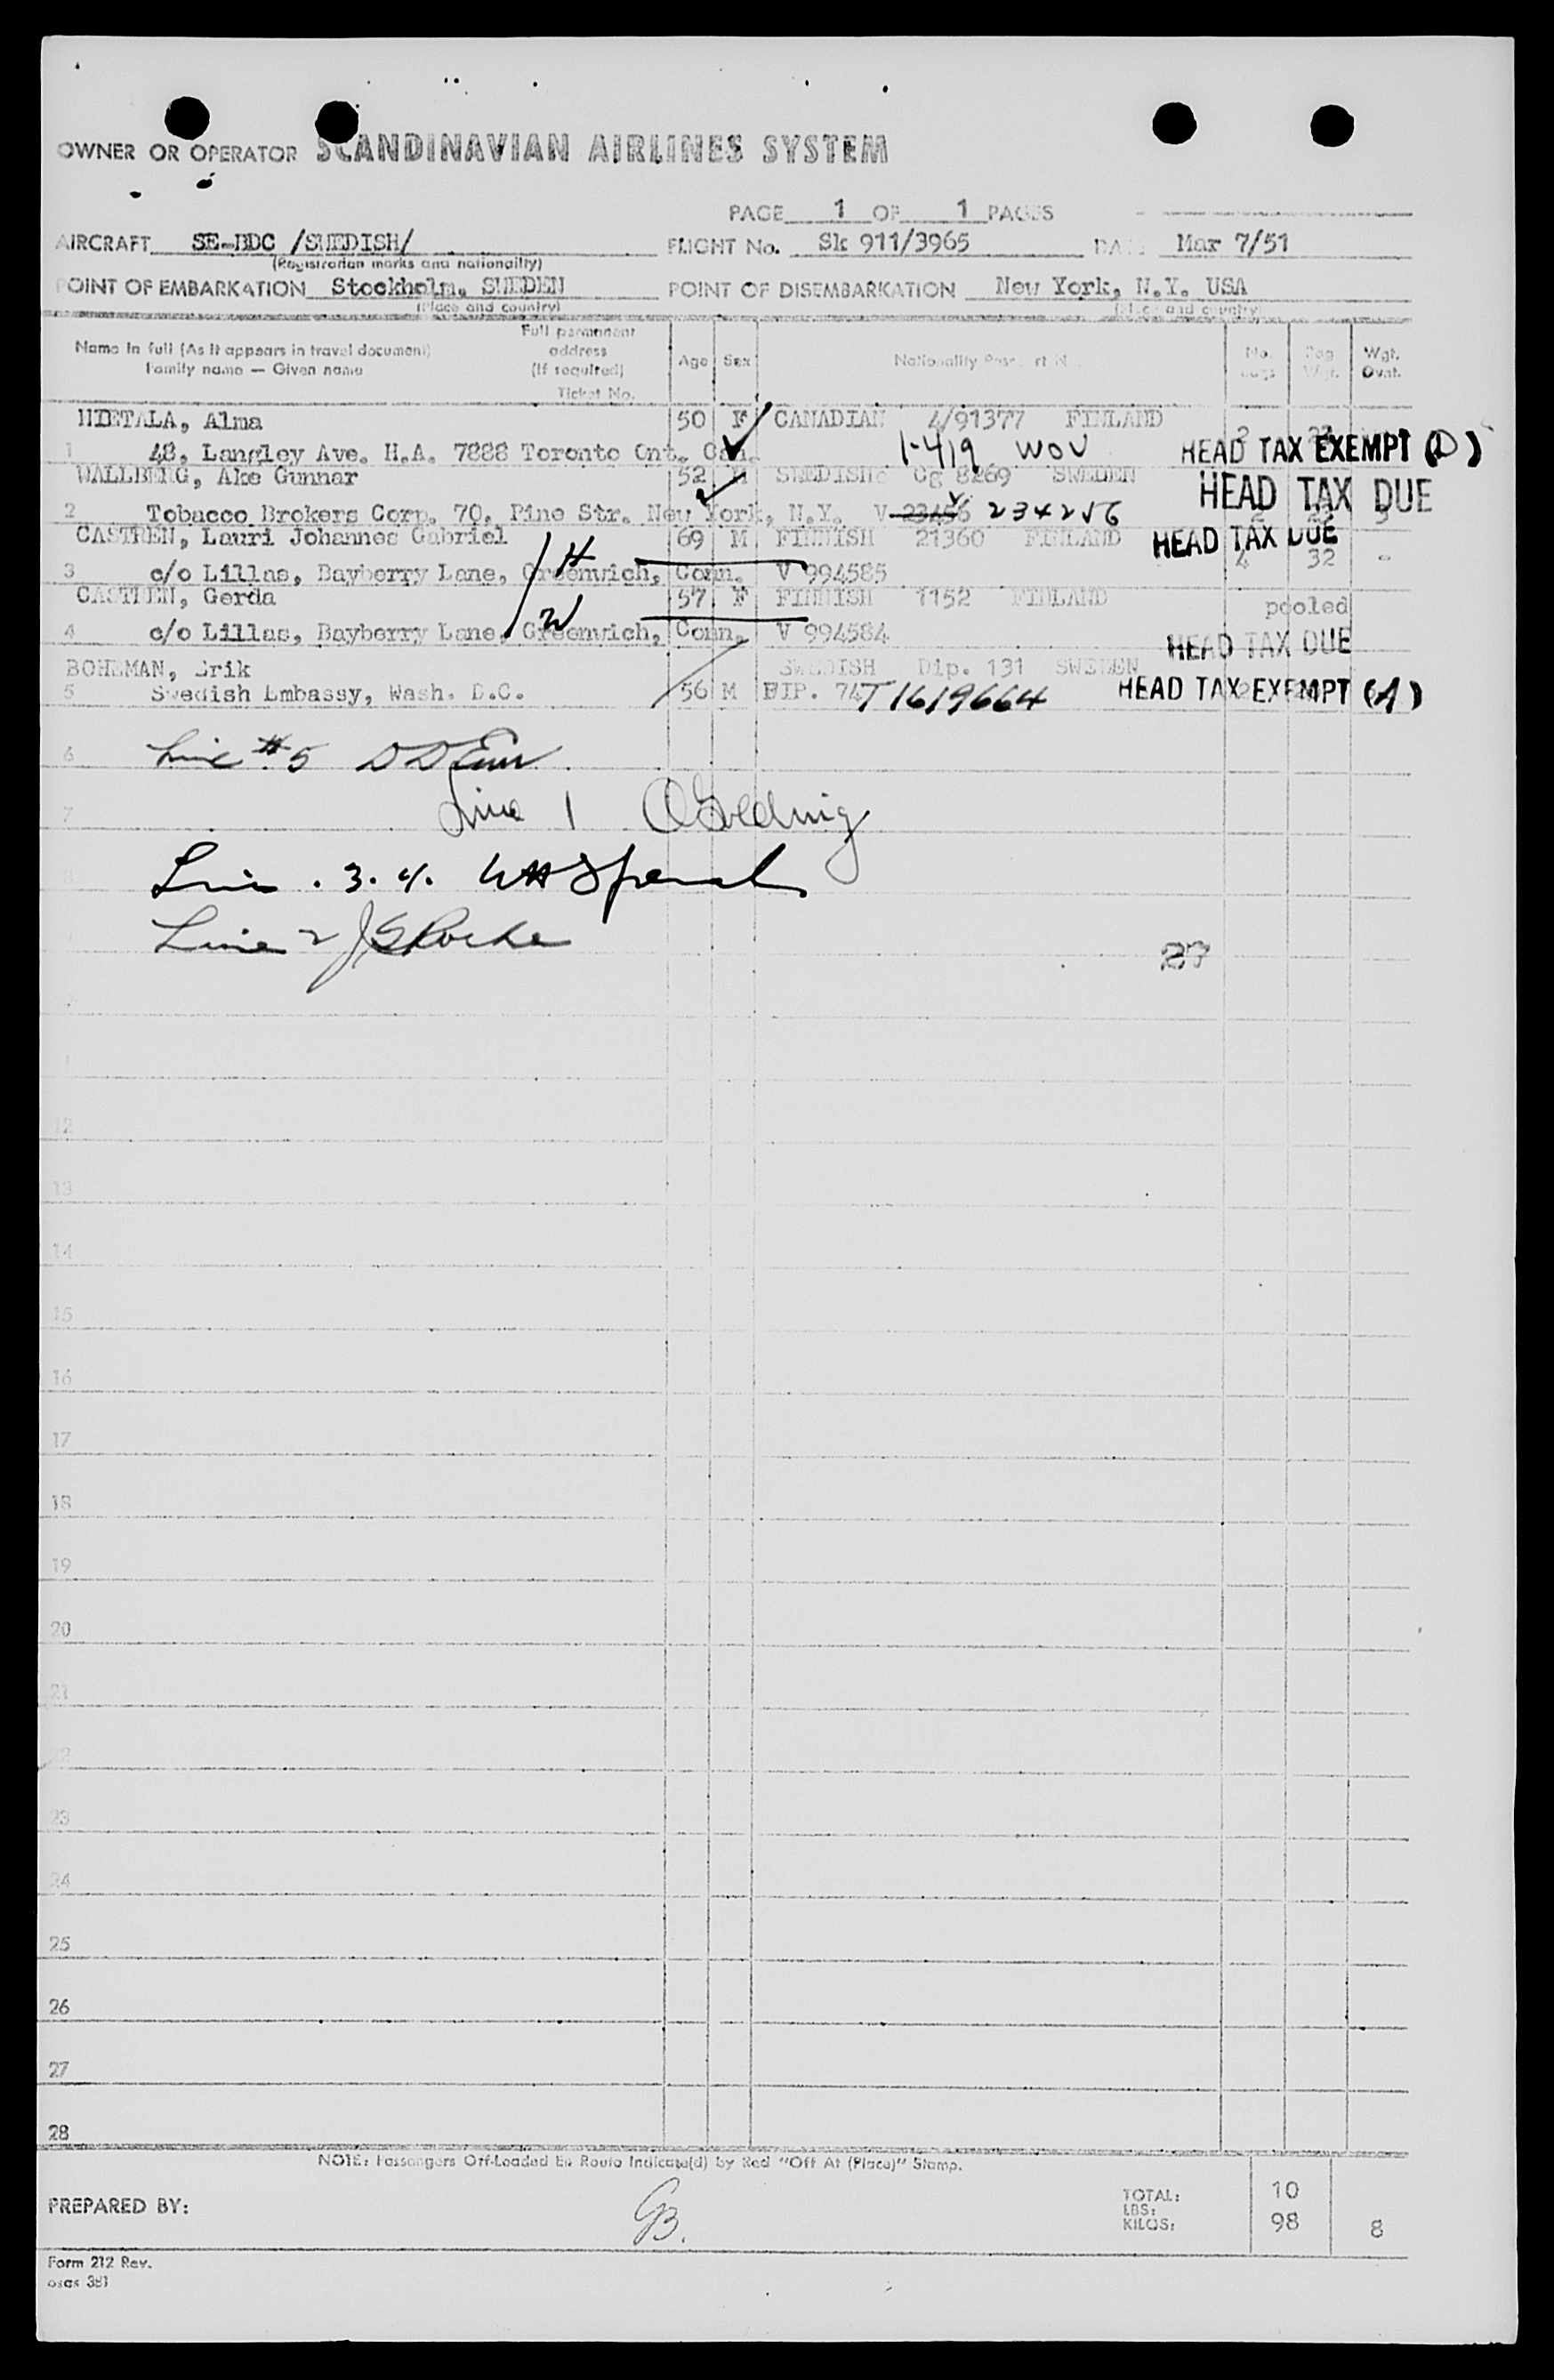 OWNER OR OPERATOR SCANDINAVIAN AIRLINES SYSTEM
PAGE 1 OF 1 PAGES
AIRCRAFT SE-BDC /SWEDISH/ FLIGHT No. Sk 911/3965 DATE Mar 7/51
(Registration marks and nationality)
POINT OF EMBARKATION Stockholm, SWEDEN POINT OF DISEMBARKATION New York, N.Y. USA
(Place and country) (Place and country)
Name in full (As it appears in travel document)
Family name — Given name
Full permanent
address
(if required)
Ticket No.
Age Sex Nationality No. Wgt. Ovwt.
HIETALA, Alma 50 F CANADIAN 4/91377 FINLAND
1 48, Langley Ave. H.A. 7888 Toronto Ont. Can. 1-419 WOV HEAD TAX EXEMPT (D)
WALLBERG, Ake Gunnar 52 M SWEDISH Cg 8269 SWEDEN HEAD TAX DUE
2 Tobacco Brokers Corp. 70, Pine Str. New York, N.Y. V 23456 234256
CASTREN, Lauri Johannes Gabriel 69 M FINNISH 21360 FINLAND HEAD TAX DUE
3 c/o Lillas, Bayberry Lane, Greenwich, Conn. V 994585 4 32 -
H
CASTREN, Gerda 57 F FINNISH 1152 FINLAND pooled
4 c/o Lillas, Bayberry Lane, Greenwich, Conn. V 994584 HEAD TAX DUE
W
BOHEMAN, Erik SWEDISH Dip. 131 SWEDEN
5 Swedish Embassy, Wash. D.C. 56 M DIP. 74 T1619664 HEAD TAX EXEMPT (A)
6 Line #5
7 Line 1 Golding
Line . 3. 4.
Line 2 JSRoche
27
12
13
14
15
16
17
18
19
20
21
22
23
24
25
26
27
28
NOTE: Passengers Off-Loaded En Route Indicate(d) by Red "Off At (Place)" Stamp.
PREPARED BY: GB.
TOTAL: 10
LBS:
KILOS: 98 8
Form 212 Rev.
osas 381